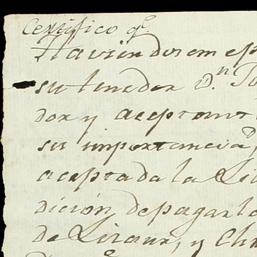 Certifico q.e
Haviendosem
su tenedor D.n
dor y acepta
su importancia,
aceptada la Li
dicion depagarl
de Liraux, y Ch